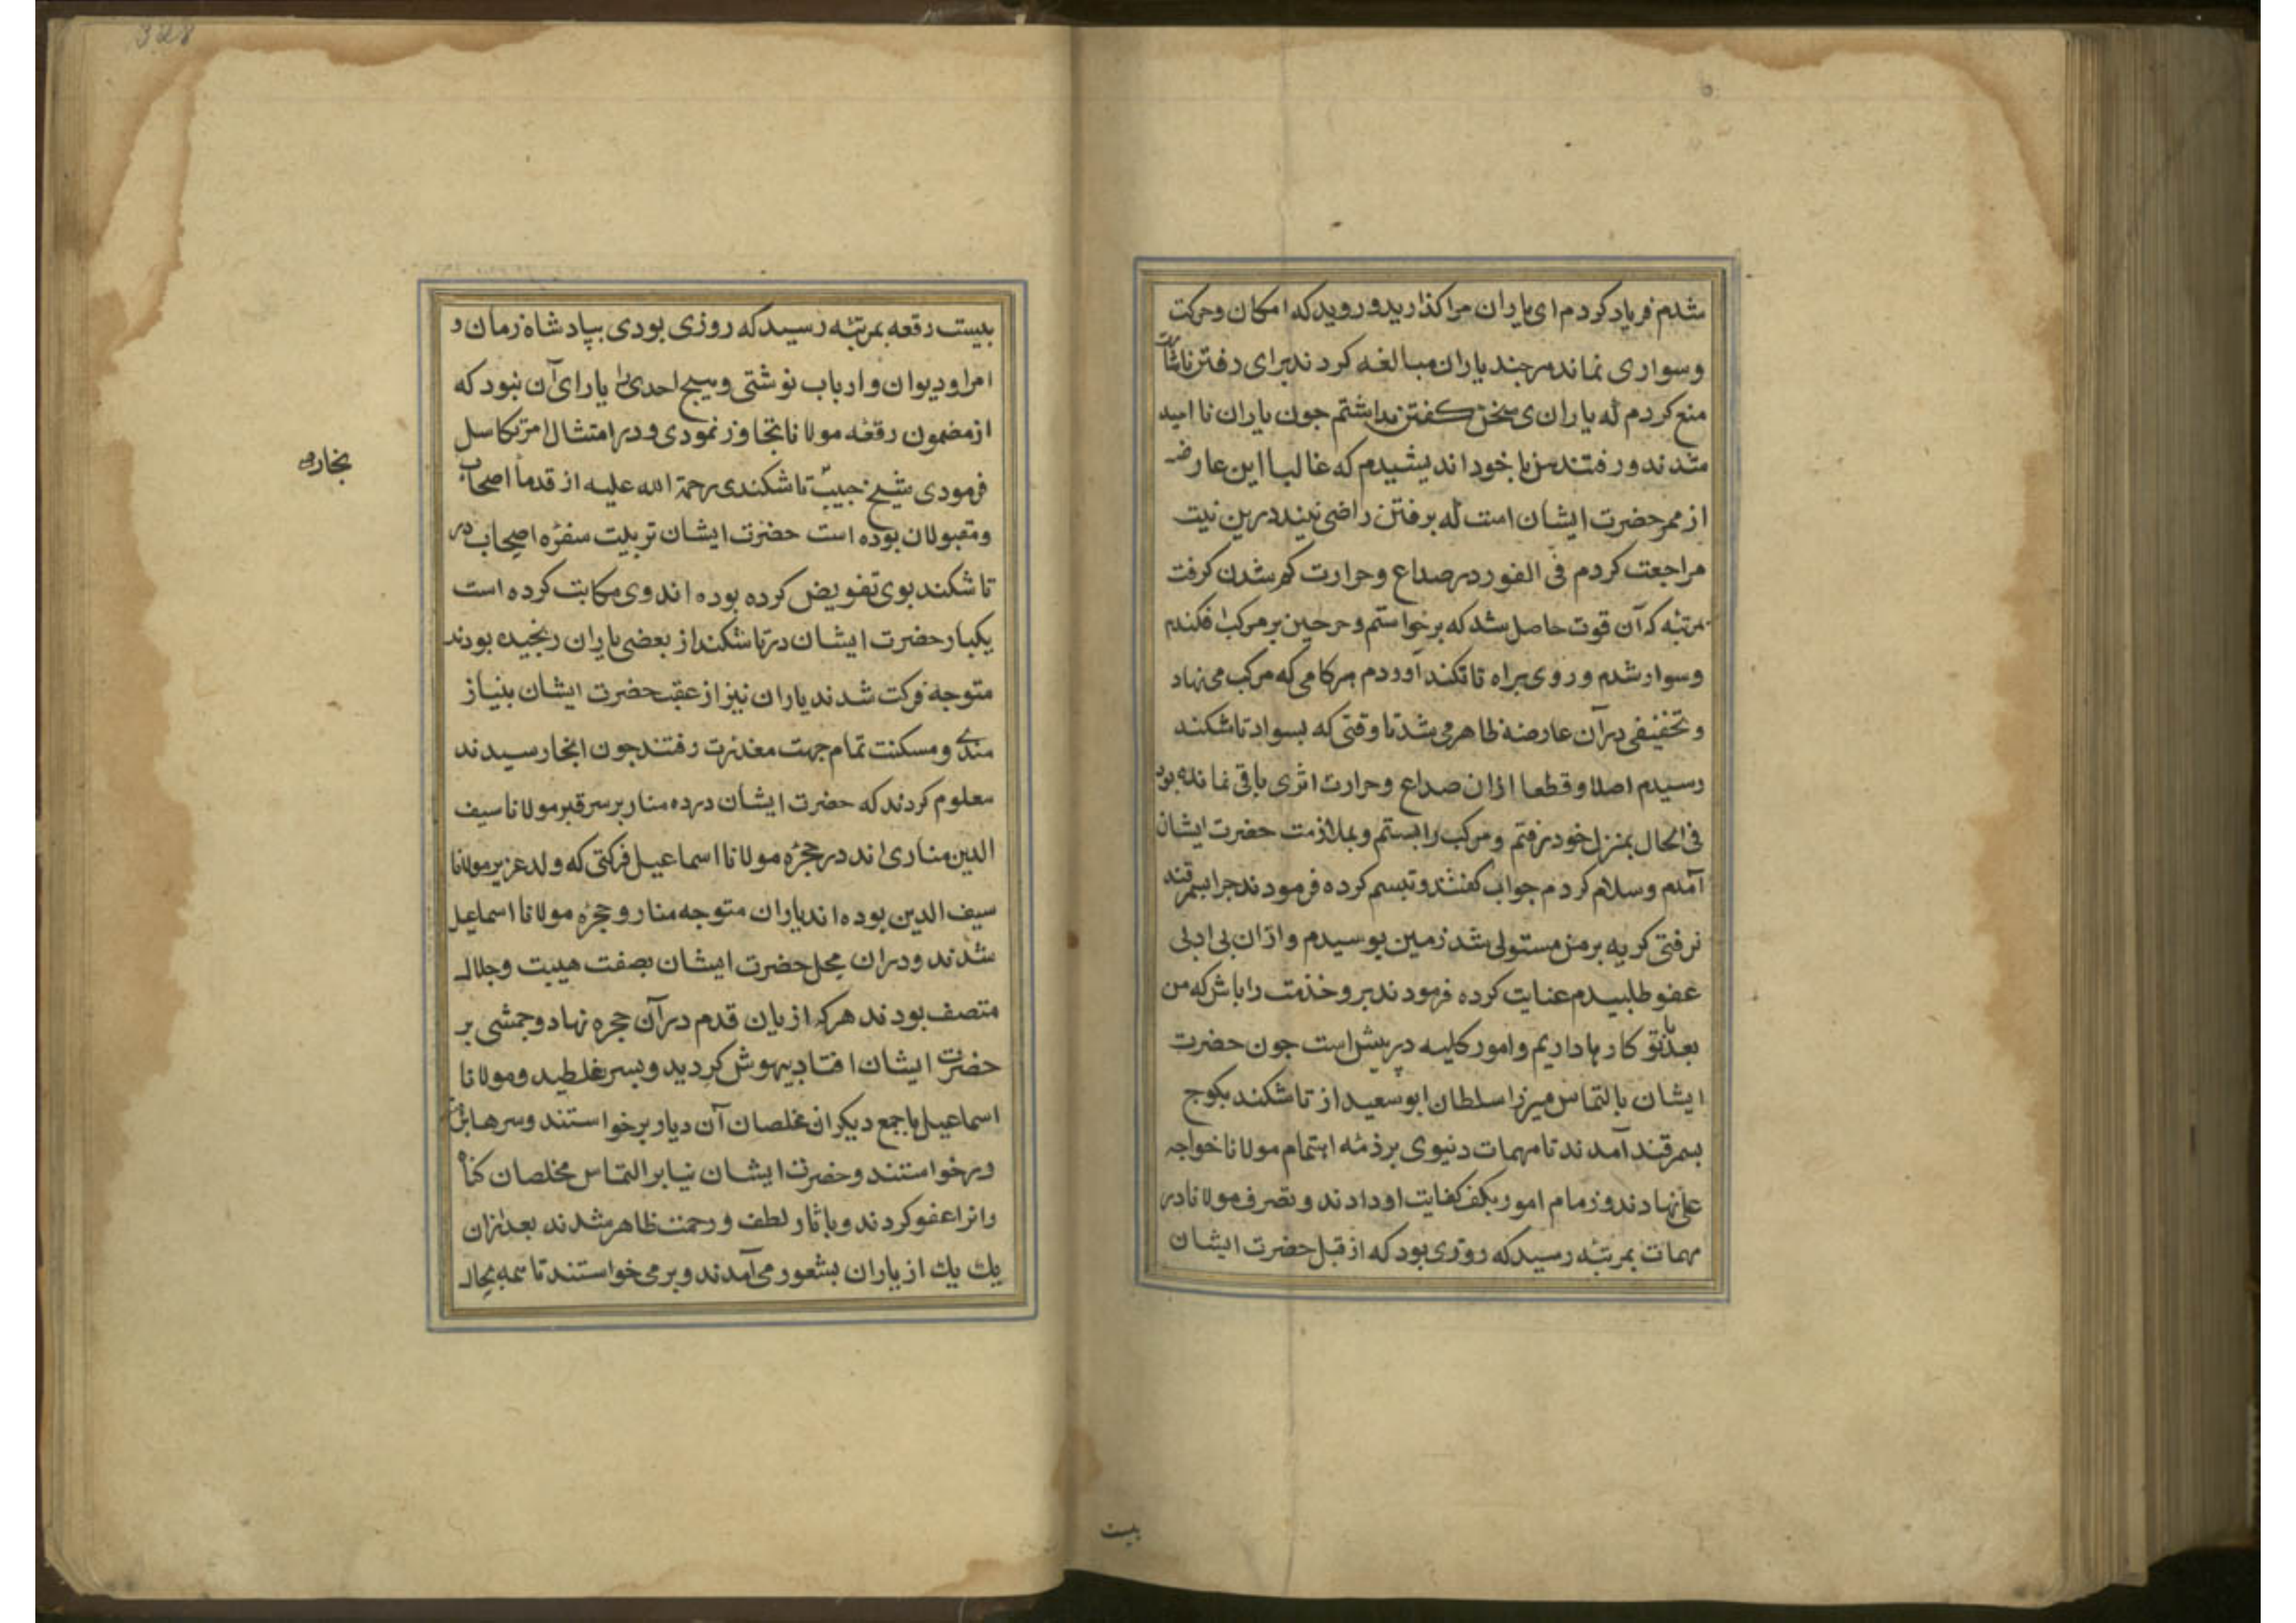 شدم فریاد کردم ای یاران مرا کذارید و روید که امکان وحرکت
وسواری نماند هرچند یاران مبالغه کردند برای رفتن باشارت
منع کردم که یارای سخن کفتن نداشتم جون یاران نا امید
شدند و رفتند من با خود اندیشیدم که غالبا این عارضه
از ممر حضرت ایشان است که برفتن راضی نیند درین نیت
مراجعت کردم فی الفور درد صداع وحرارت کم شدن کرفت
بمرتبه که آن قوت حاصل شد که برخواستم و خرجین بر مرکب افکندم
وسوار شدم و روی براه تاشکند آوردم هر کامی که مرکب می نهاد
و تخفیفی در آن عارضه ظاهر می شد تا وقتی که بسواد تاشکند
رسیدم اصلا و قطعا ازان صداع وحرارت اثری باقی نمانده بود
فی الحال بمنزل خود رفتم و مرکب را بستم و بملازمت حضرت ایشان
آمدم وسلام کردم جواب کفتند و تبسم کرده فرمودند جرا بسمرقند
نرفتی کریه بر من مستولی شد زمین بوسیدم و ازان بی ادبی
عفو طلبیدم عنایت کرده فرمودند برو خذمت را باش که من
بعد با تو کارها داریم و امور کلیه در پیش است جون حضرت
ایشان بالتماس میرزا سلطان ابو سعید از تاشکند بکوج
بسمرقند آمدند تا مهمات دنیوی بر ذمه اهتمام مولانا خواجه
علی نهادند و زمام امور بکف کفایت او دادند و تصرف مولانا در
مهمات بمرتبه رسید که روزی بود که از قبل حضرت ایشان
بیست
بیست رقعه بمرتبه رسید که روزی بودی بپادشاه زمان و
امرا و دیوان و ارباب نوشتی وهیچ احدی را یارای آن نبود که
از مضمون رقعه مولانا تجاوز نمودی و در امتثال امر تکاسل
فرمودی شیخ حبیب تاشکندی رحمة الله علیه از قدما اصحاب
ومقبولان بوده است حضرت ایشان تربیت سفره اصحاب در
تاشکند بوی تفویض کرده بوده اند وی حکایت کرده است
یکبار حضرت ایشان در تاشکند از بعضی یاران رنجیده بودند
متوجه فرکت شدند یاران نیز از عقب حضرت ایشان بنیاز
مندی ومسکنت تمام جهت معذرت رفتند جون انجا رسیدند
معلوم کردند که حضرت ایشان در ده منار بر سر قبر مولانا سیف
الدین مناری اند در حجره مولانا اسماعیل فرکتی که ولد عزیز مولانا
سیف الدین بوده اند یاران متوجه منار و حجره مولانا اسماعیل
شدند و دران محل حضرت ایشان بصفت هیبت وجلال
متصف بودند هرکه از یان قدم در آن حجره نهاد و جمشی بر
حضرت ایشان افتاد بیهوش کردید و بسر غلطید و مولانا
اسماعیل با جمع دیکر ان مخلصان آن دیار برخواستند وسرها
درخواستند وحضرت ایشان بنا بر التماس مخلصان کناه
رانرا عفو کردند و باثار لطف و رحمت ظاهر شدند بعد ازان
یک یک از یاران بشعور می آمدند و بر می خواستند تا همه بحال